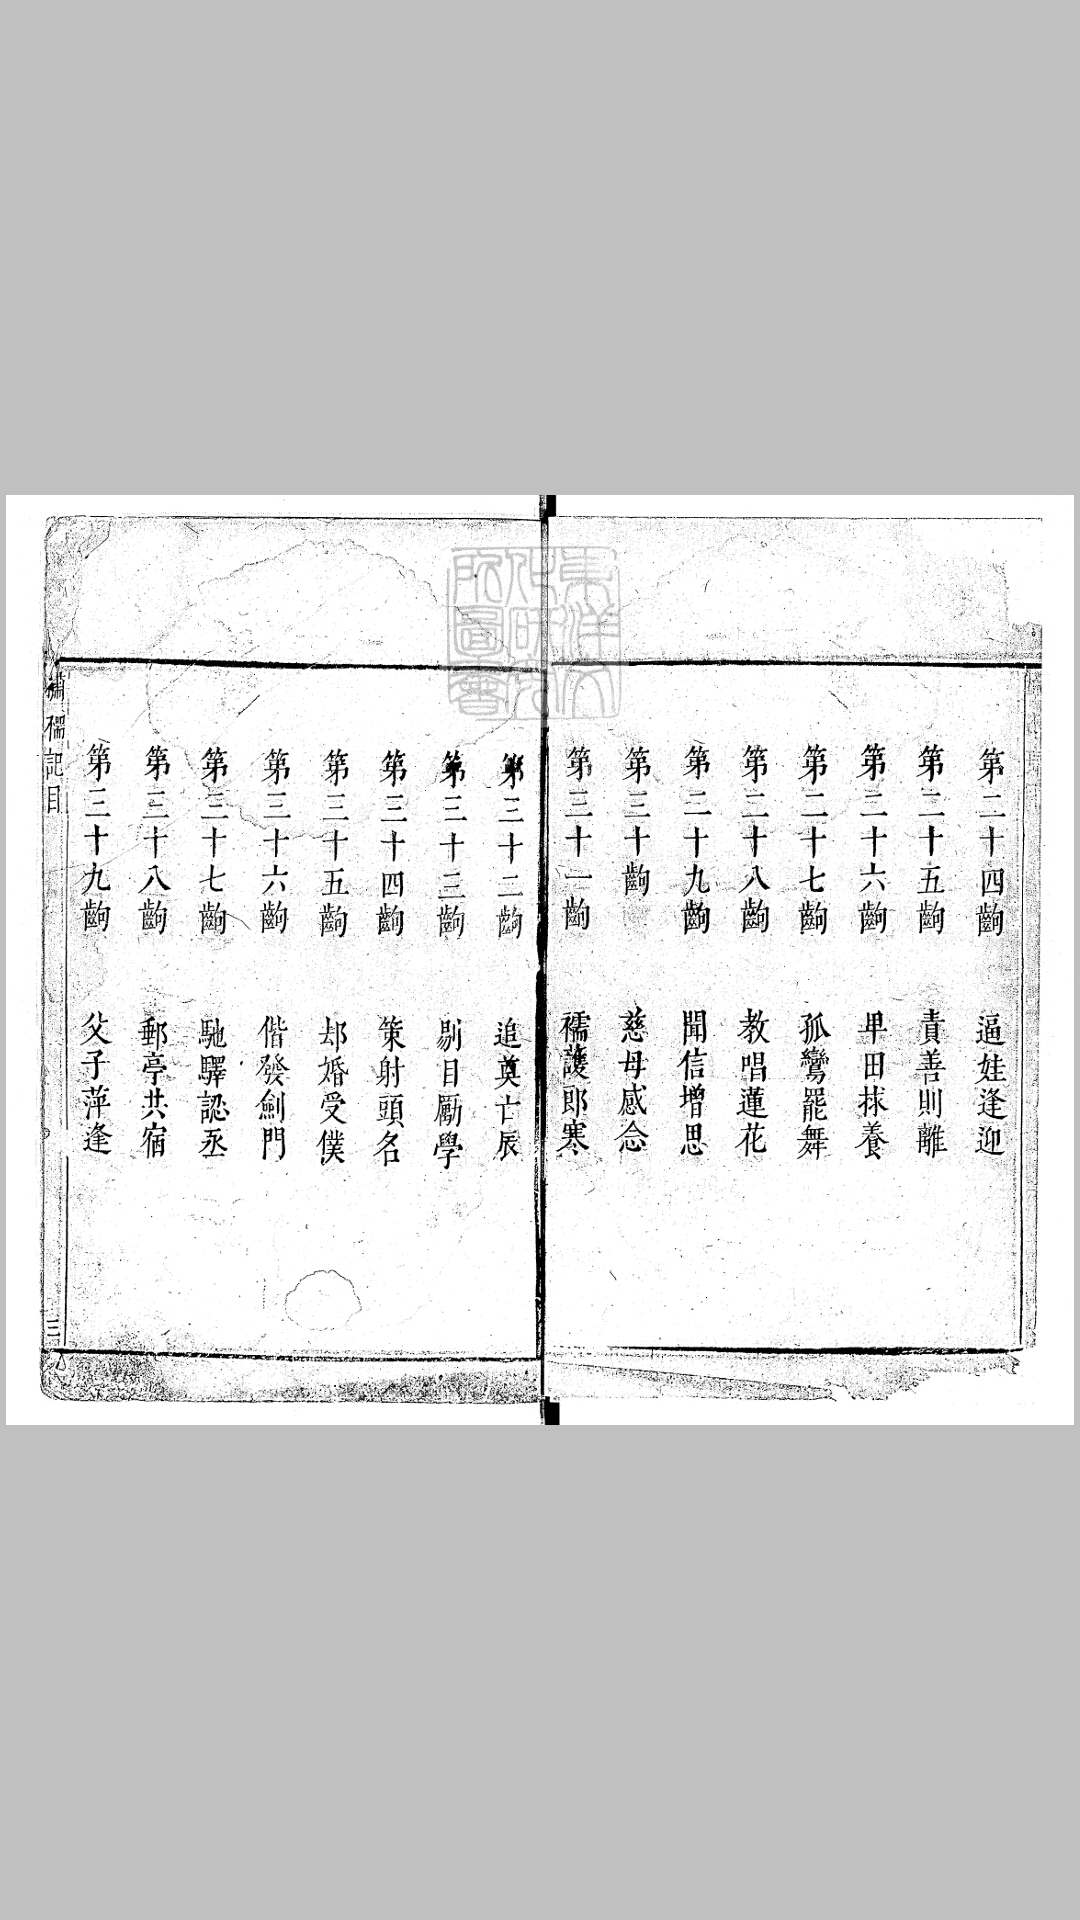 第二十四齣 逼娃逢迎
第二十五齣 責善則離
第二十六齣 卑田抹養
第二十七齣 孤鸞罷舞
第二十八齣 教唱蓮花
第二十九齣 聞信增思
第三十齣 慈母感念
第三十一齣 襦護郎寒
第三十二齣 追奠亡辰
第三十三齣 剔目勵學
第三十四齣 策射頭名
第三十五齣 却婚受僕
第三十六齣 偕發劍門
第三十七齣 馳驛認丞
第三十八齣 郵亭共宿
第三十九齣 父子萍逢
繡襦記目
三